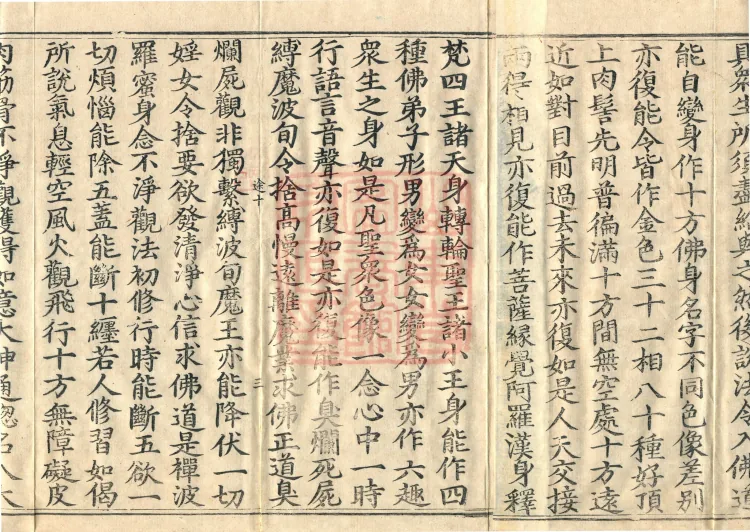 具眾生所須盡給與之然後說法令入佛道
能自變身作十方佛身名字不同色像差別
亦復能令皆作金色三十二相八十種好頂
上肉髻光明普徧滿十方間無空處十方遠
近如對目前過去未來亦復如是人天交接
兩得相見亦復能作菩薩緣覺阿羅漢身釋
梵四王諸天身轉輪聖王諸小王身能作四
種佛弟子形男變為女女變為男亦作六趣
眾生之身如是凡聖眾色像一念心中一時
行語言音聲亦復如是亦復能作臭爛死屍
縛魔波旬令捨高慢遠離魔業求佛正道臭
爛屍觀非獨繫縛波旬魔王亦能降伏一切
婬女令捨要欲發清淨心信求佛道是禪波
羅蜜身念不淨觀法初修行時能斷五欲一
切煩惱能除五蓋能斷十纏若人修習如偈
所說氣息輕空風火觀飛行十方無障礙皮
肉筋骨不淨觀獲得如意大神通總名八大
途十
三